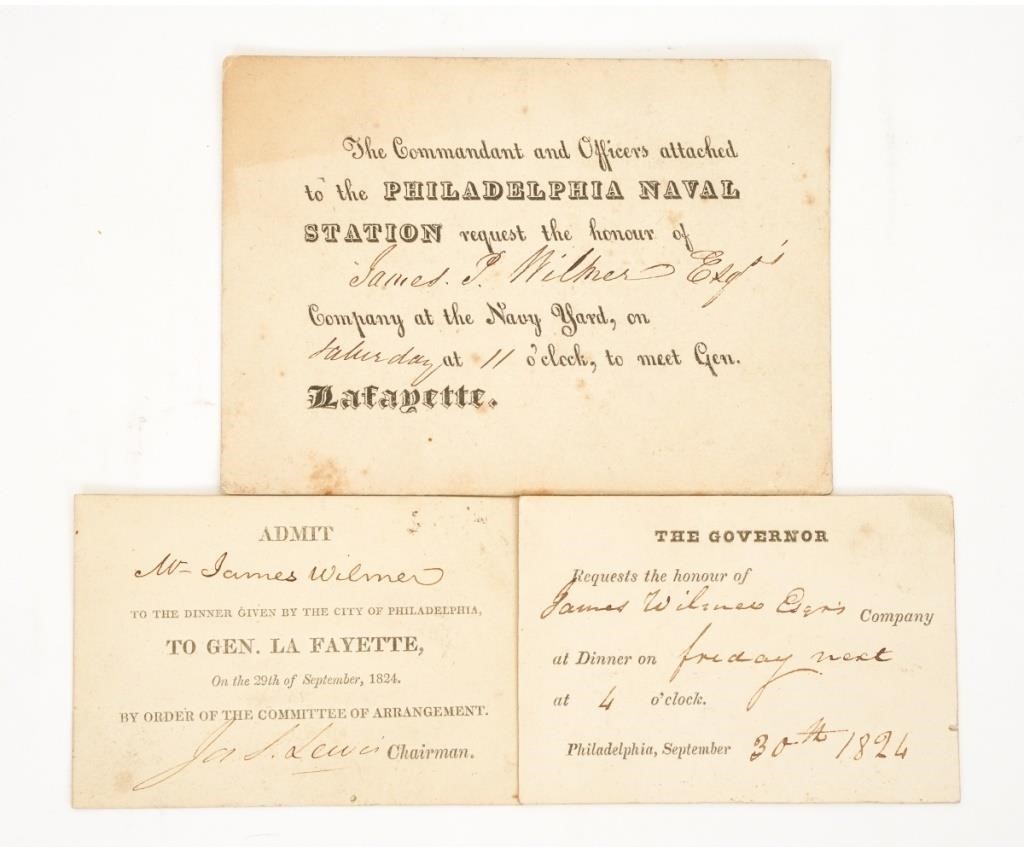 The Commandant and Officers attached
to the PHILADELPHIA NAVAL
STATION request the honour of
James. P. Wilmer Esqrs
Company at the Navy Yard, on
Saturday at 11 o'clock, to meet Gen.
Lafayette.
ADMIT
Mr James Wilmer
TO THE DINNER GIVEN BY THE CITY OF PHILADELPHIA,
TO GEN. LA FAYETTE,
On the 29th of September, 1824.
BY ORDER OF THE COMMITTEE OF ARRANGEMENT.
Jos S. Lewis Chairman.
THE GOVERNOR
Requests the honour of
James Wilmer Esqrs Company
at Dinner on friday next
at 4 o'clock.
Philadelphia, September 30th 1824